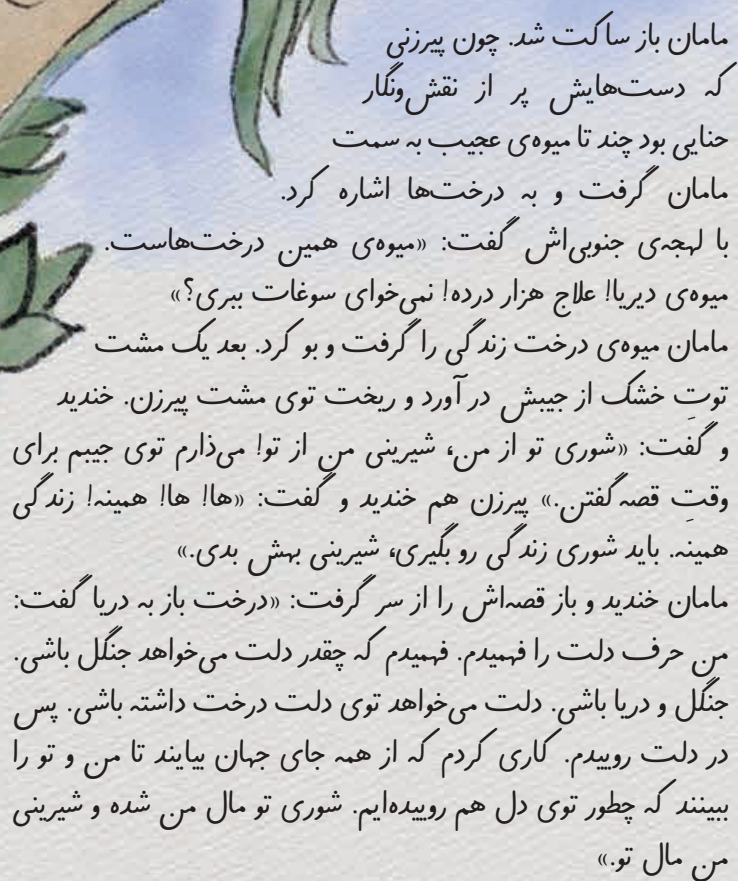 مامان باز ساکت شد. چون پیرزنی
که دست‌هایش پر از نقش‌ونگار
حنایی بود چند تا میوه‌ی عجیب به سمت
مامان گرفت و به درخت‌ها اشاره کرد.
با لهجه‌ی جنوبی‌اش گفت: «میوه‌ی همین درخت‌هاست.
میوه‌ی دیریا! علاج هزار درده! نمی‌خوای سوغات ببری؟»
مامان میوه‌ی درخت زندگی را گرفت و بو کرد. بعد یک مشت
توتِ خشک از جیبش در آورد و ریخت توی مشت پیرزن. خندید
و گفت: «شوری تو از من، شیرینی من از تو! می‌ذارم توی جیبم برای
وقتِ قصه گفتن.» پیرزن هم خندید و گفت: «ها! ها! همینه! زندگی
همینه. باید شوری زندگی رو بگیری، شیرینی بهش بدی.»
مامان خندید و باز قصه‌اش را از سر گرفت: «درخت باز به دریا گفت:
من حرف دلت را فهمیدم. فهمیدم که چقدر دلت می‌خواهد جنگل باشی.
جنگل و دریا باشی. دلت می‌خواهد توی دلت درخت داشته باشی. پس
در دلت روییدم. کاری کردم که از همه جای جهان بیایند تا من و تو را
ببینند که چطور توی دل هم روییده‌ایم. شوری تو مال من شده و شیرینی
من مال تو.»